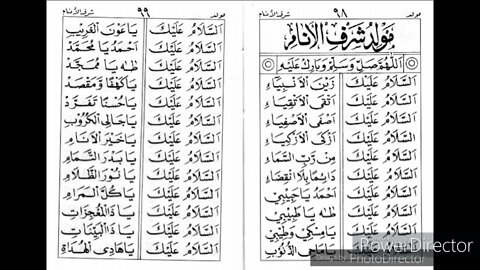 مولد ٩٨ شرف الأنام
مَوْلِدُ شَرَفِ الْأَنَامِ
اَللّٰهُمَّ صَلِّ وَسَلِّمْ وَبَارِكْ عَلَيْهِ
اَلسَّلَامُ عَلَيْكَ زَيْنَ الْأَنْبِيَاءِ
اَلسَّلَامُ عَلَيْكَ أَتْقَى الْأَتْقِيَاءِ
اَلسَّلَامُ عَلَيْكَ أَصْفَى الْأَصْفِيَاءِ
اَلسَّلَامُ عَلَيْكَ أَزْكَى الْأَزْكِيَاءِ
اَلسَّلَامُ عَلَيْكَ مِنْ رَبِّ السَّمَاءِ
اَلسَّلَامُ عَلَيْكَ دَائِمًا بِلَا انْقِضَاءِ
اَلسَّلَامُ عَلَيْكَ أَحْمَدُ يَا حَبِيبِي
اَلسَّلَامُ عَلَيْكَ طٰهٰ يَا طَبِيبِي
اَلسَّلَامُ عَلَيْكَ يَا مِسْكِي وَطِيبِي
اَلسَّلَامُ عَلَيْكَ يَا مَاحِي الذُّنُوبِ
مولد ٩٩ شرف الأنام
اَلسَّلَامُ عَلَيْكَ يَا عَوْنَ الْغَرِيبِ
اَلسَّلَامُ عَلَيْكَ أَحْمَدُ يَا مُحَمَّدُ
اَلسَّلَامُ عَلَيْكَ طٰهٰ يَا مُمَجَّدُ
اَلسَّلَامُ عَلَيْكَ يَا كَهْفًا وَمَقْصَدْ
اَلسَّلَامُ عَلَيْكَ يَا حُسْنًا تَفَرَّدْ
اَلسَّلَامُ عَلَيْكَ يَا جَالِي الْكُرُوبِ
اَلسَّلَامُ عَلَيْكَ يَا خَيْرَ الْأَنَامِ
اَلسَّلَامُ عَلَيْكَ يَا بَدْرَ التَّمَامِ
اَلسَّلَامُ عَلَيْكَ يَا نُورَ الظَّلَامِ
اَلسَّلَامُ عَلَيْكَ يَا كُلَّ الْمَرَامِ
اَلسَّلَامُ عَلَيْكَ يَا ذَا الْمُعْجِزَاتِ
اَلسَّلَامُ عَلَيْكَ يَا ذَا الْبَيِّنَاتِ
اَلسَّلَامُ عَلَيْكَ يَا هَادِي الْهُدَاةِ
PowerDirector
PhotoDirector